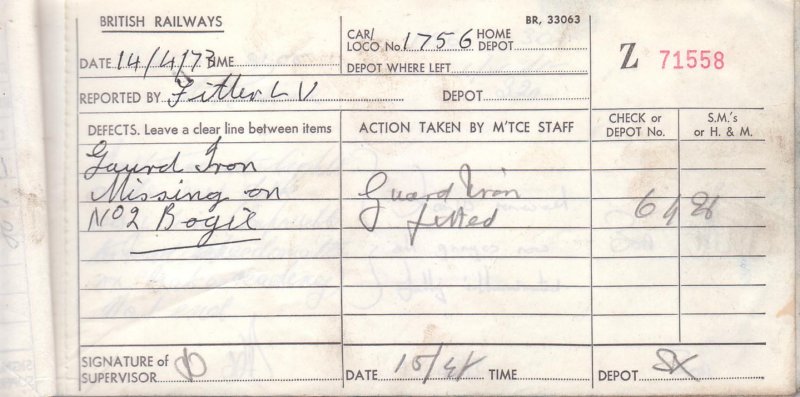 BRITISH RAILWAYS
BR, 33063
DATE 14/4/73 TIME
CAR/ LOCO No. 1756 HOME DEPOT
Z 71558
DEPOT WHERE LEFT
REPORTED BY Fitter L V DEPOT
DEFECTS. Leave a clear line between items
ACTION TAKEN BY M'TCE STAFF
CHECK or DEPOT No.
S.M.'s or H. & M.
Gaurd Iron
Missing on
No2 Bogie
Guard Iron
fitted
SIGNATURE of SUPERVISOR
DATE 15/4 TIME
DEPOT